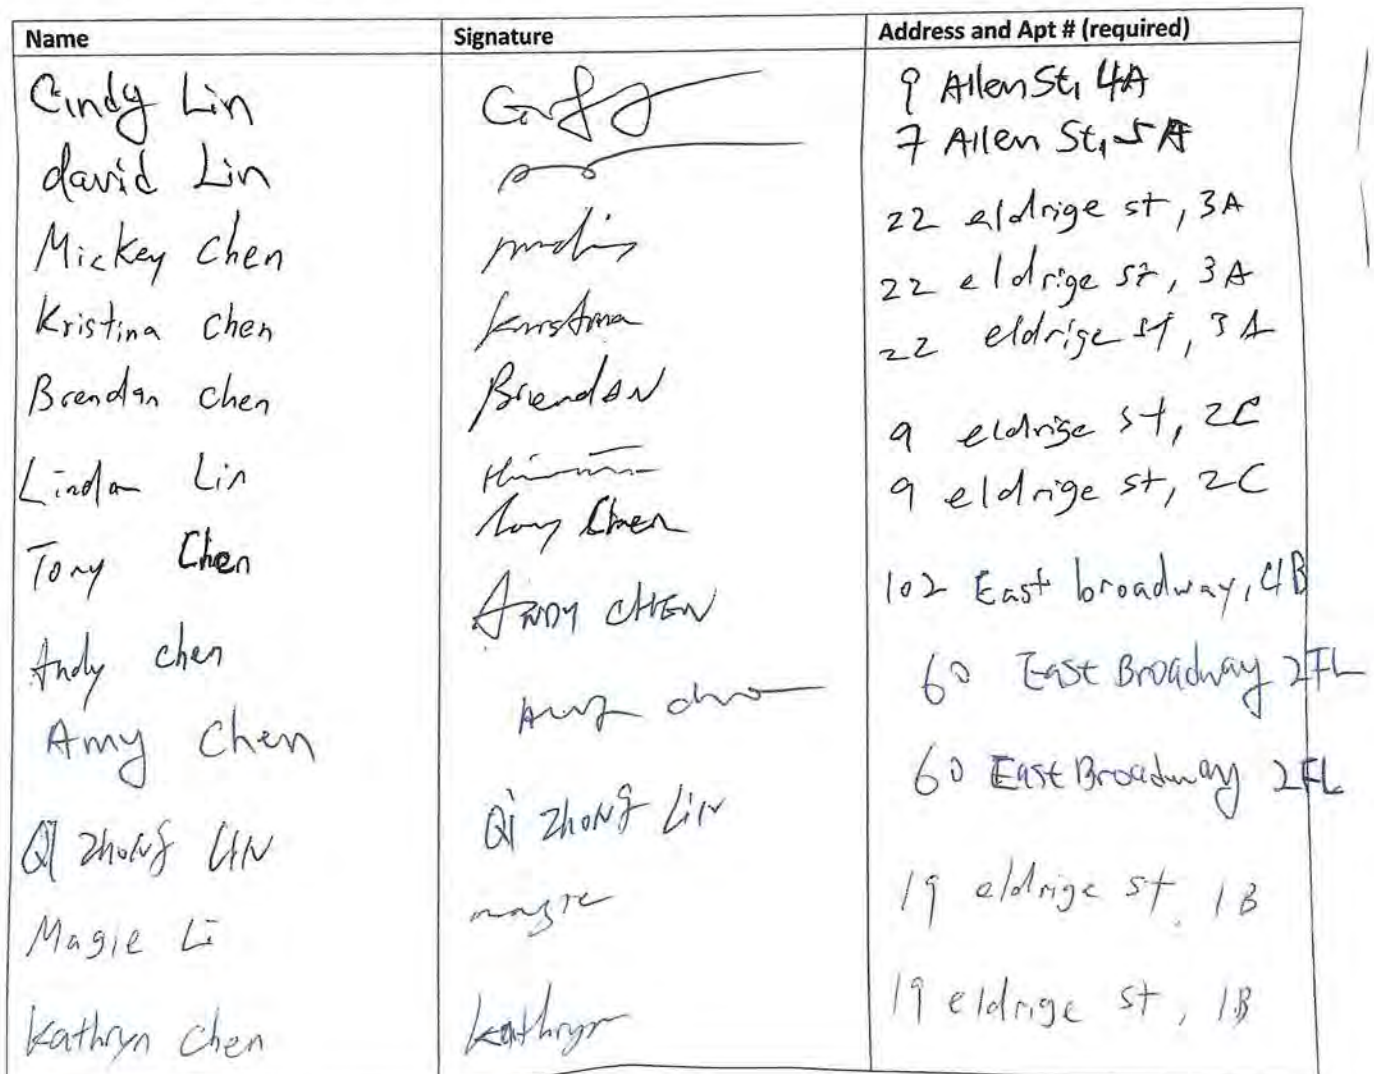 Name Signature Address and Apt # (required)
Cindy Lin 9 Allen St, 4A
david Lin 7 Allen St, 5A
Mickey Chen 22 eldrige st, 3A
Kristina Chen Kristina 22 eldrige st, 3A
Brendan Chen Brendan 22 eldrige st, 3A
Linda Lin 9 eldrige st, 2C
Tony Chen Tony Chen 9 eldrige st, 2C
Andy chen ANDY CHEN 102 East broadway, 4B
Amy Chen Amy 60 East Broadway 2FL
Qi ZhoNg LIN Qi ZhoNg LiN 60 East Broadway 2FL
Magie Li magie 19 eldrige st, 1B
Kathryn Chen Kathryn 19 eldrige st, 1B